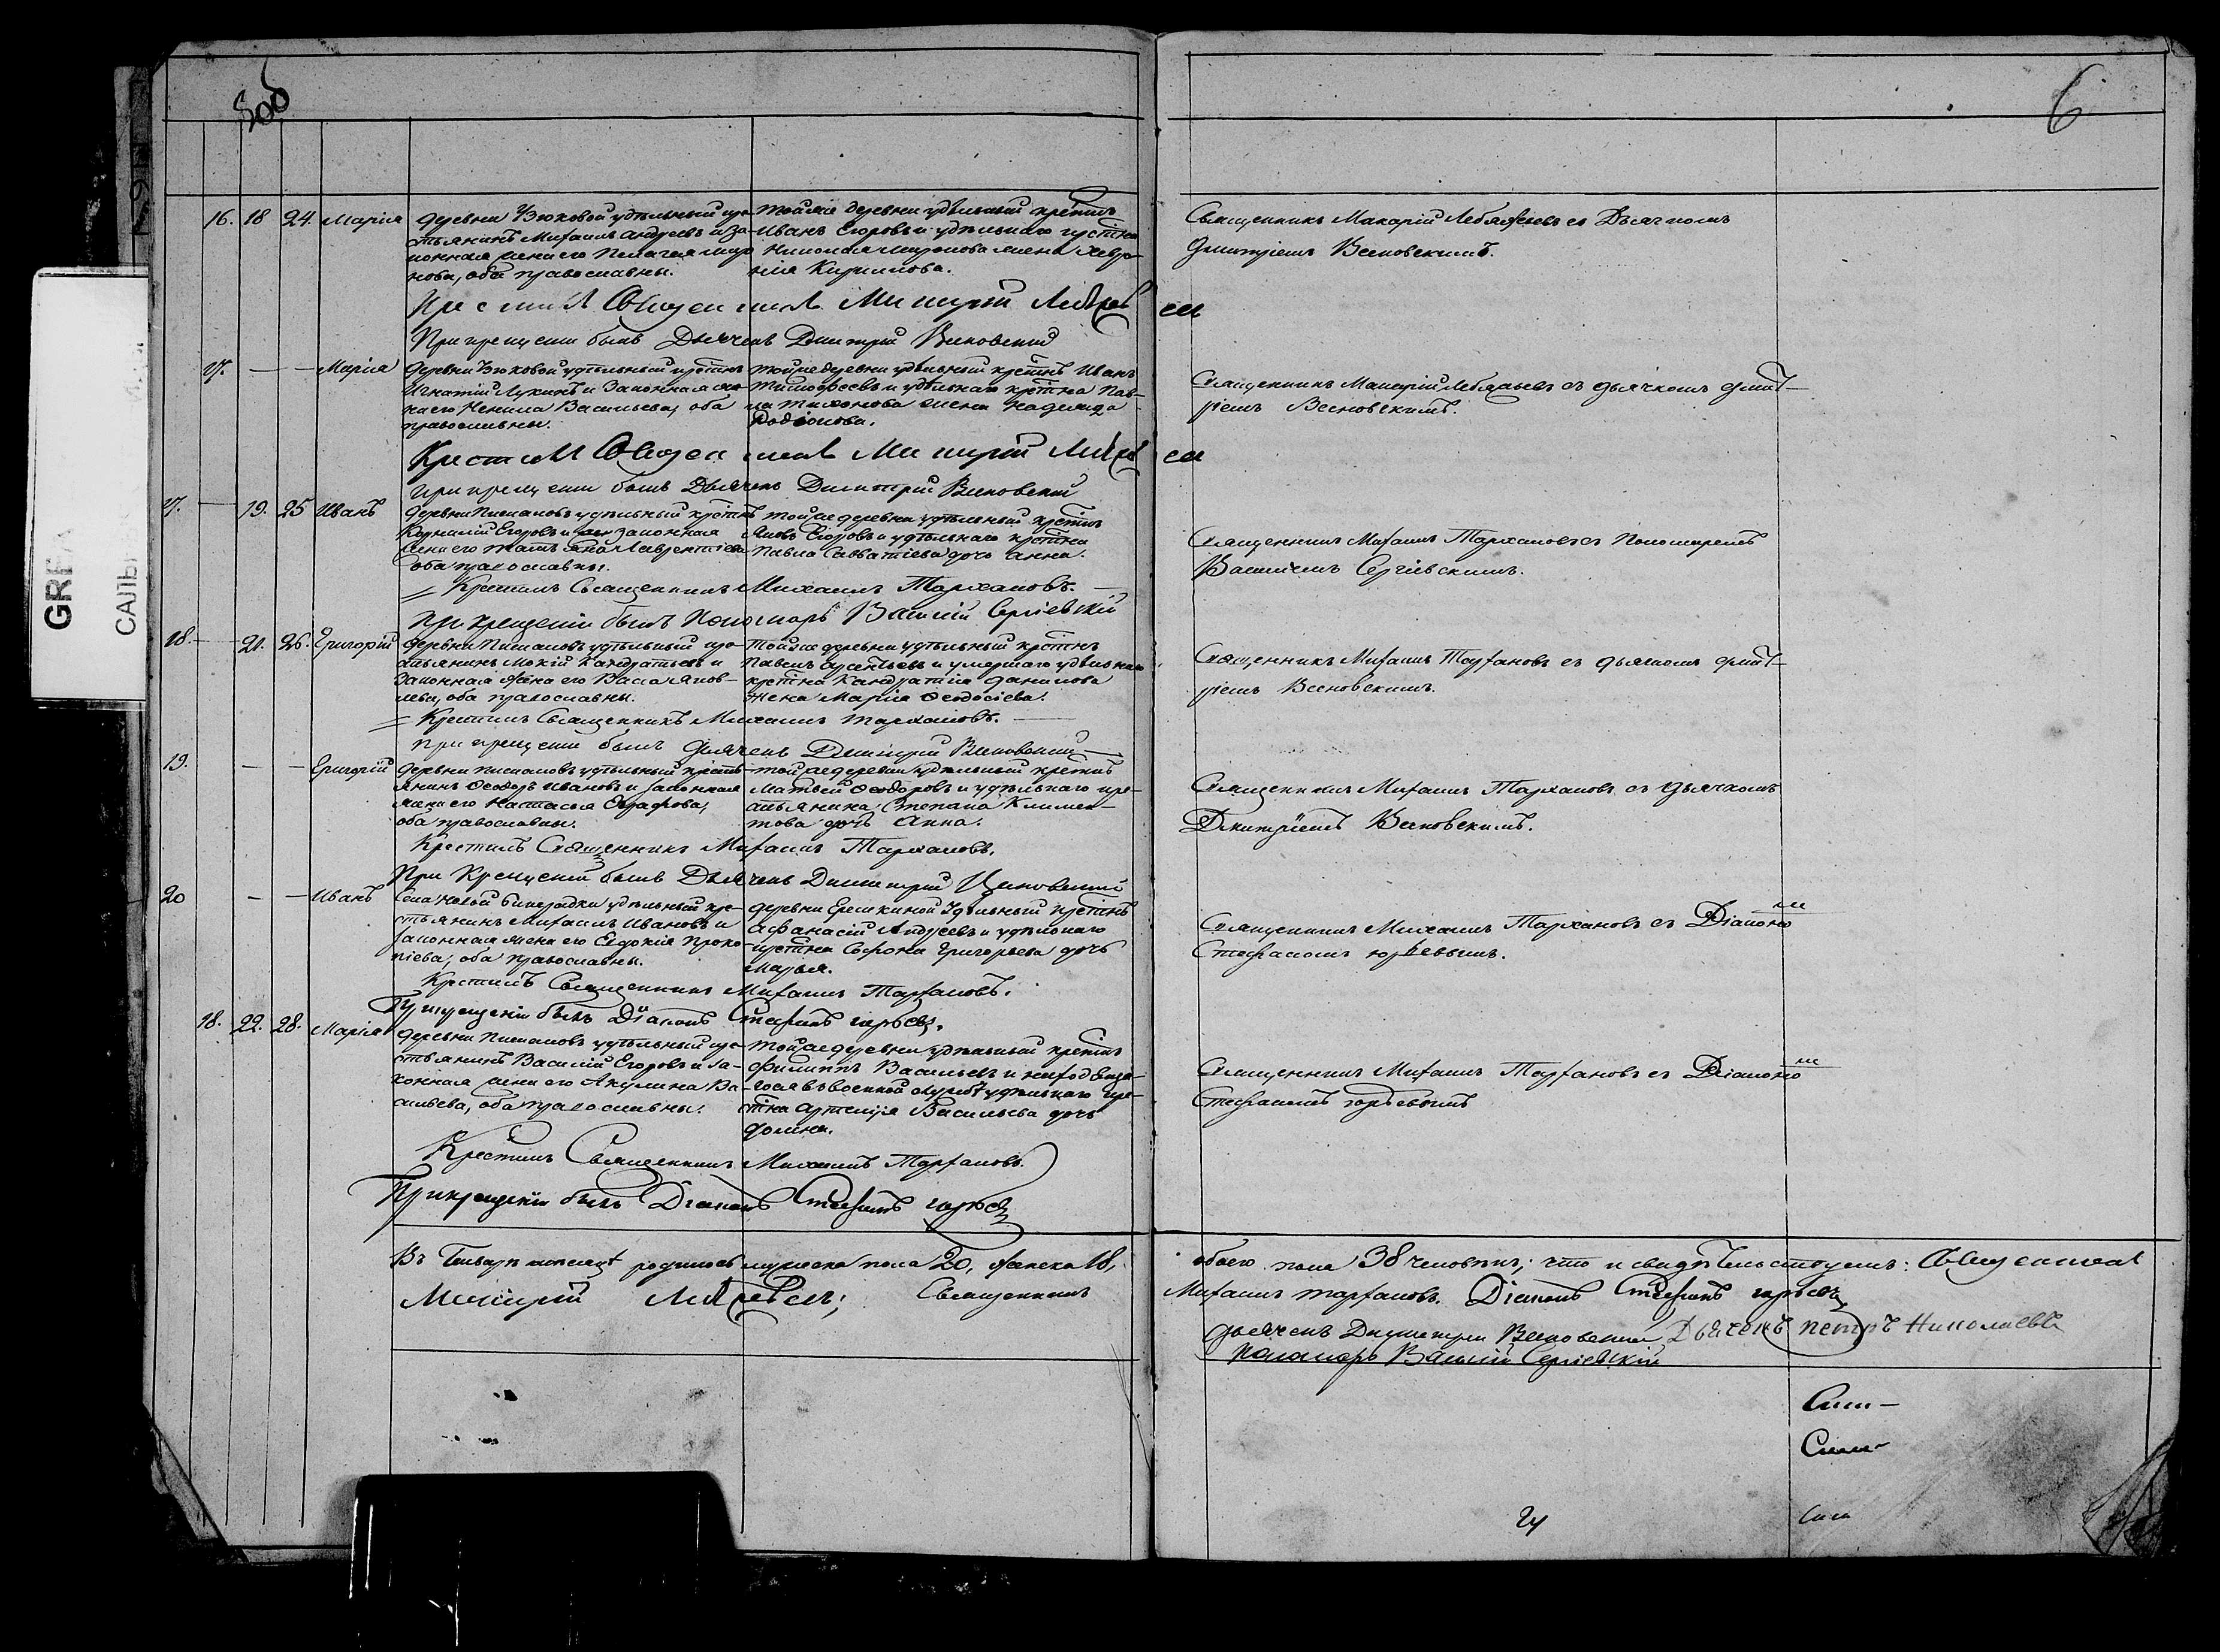 5 об
6
16. 18 24. Марія
деревни Вюковой удѣльный кре-
стьянинъ Михаилъ Андреевъ и за-
конная жена его Пелагея Миро
нова, оба православны.
тойже деревни удѣльный крестнъ
Иванъ Егоровъ и удѣльнаго крестна
Николая Миронова жена Хевро-
нія Кирилова.
Священникъ Макарій Лебяжьевъ съ Дьячкомъ
Дмитріемъ Весновскимъ.
Крестилъ Священникъ Макарій Лебяжьевъ
При крещеніи былъ Дьячекъ Димитрій Весновскій
17. — — Марія
деревни Вюковой удѣльный крестнъ
Игнатій Лукинъ и Законная же-
на его Ненила Васильева, оба
православны.
тойже деревни удѣльный крестнъ Иванъ
Тимофеевъ и удѣльнаго крестна Пав-
ла Тихонова жена Надежда
Родіонова.
Священникъ Макарій Лебяжьевъ съ дьячкомъ Дмит-
ріемъ Весновскимъ.
Крестилъ Священникъ Макарій Лебяжьевъ
При крещеніи былъ Дьячекъ Димитрій Весновскій
17. — 19. 25 Иванъ
деревни Писмановъ удѣльный крестнъ
Корнилій Егоровъ и законная
жена его Татьяна Лаврентіева
оба православны.
тойже деревни удѣльный крестнъ
Яковъ Егоровъ и удѣльнаго крестна
Павла Савватіева дочь Анна.
Священникъ Михаилъ Тархановъ съ Пономаремъ
Василіемъ Сергіевскимъ.
Крестилъ Священникъ Михаилъ Тархановъ.
При крещеніи былъ Пономарь Василій Сергіевскій
18. — 21. 26. Григорій
деревни Писмановъ удѣльный кре-
стьянинъ Мокій Кандратьевъ и
Законная жена его Васса Яков-
лева, оба православны.
тойже деревни удѣльный крестнъ
Павелъ Арсентьевъ и умершаго удѣльнаго
крестна Кандратія Данилова
жена Марія Ѳеодосіева.
Священникъ Михаилъ Тархановъ съ дьячкомъ Дмит-
ріемъ Весновскимъ.
Крестилъ Священникъ Михаилъ Тархановъ.
При крещеніи былъ дьячекъ Димитрій Весновскій
19. — — Григорій
деревни Писмановъ удѣльный кресть-
янинъ Ѳеодоръ Ивановъ и законная
жена его Настасья Евграфова,
оба православны.
тойже деревни удѣльный крестнъ
Матвей Ѳеодоровъ и удѣльнаго кре-
стьянина Степана Климен-
това дочь Анна.
Священникъ Михаилъ Тархановъ съ дьячкомъ
Дмитріемъ Весновскимъ.
Крестилъ Священникъ Михаилъ Тархановъ.
При Крещеніи былъ Дьячекъ Димитрій Весновскій
20 — — Иванъ
Села Новой удѣльный кре-
стьянинъ Михаилъ Ивановъ и
законная жена его Евдокія Проко-
піева, оба православны.
деревни Ерыкиной Удѣльный крестнъ
Афанасій Андреевъ и удѣльнаго
крестна Софона Григорьева дочь
Марья.
Священникъ Михаилъ Тархановъ съ Діакономъ
Стефаномъ Юрьевымъ.
Крестилъ Священникъ Михаилъ Тархановъ.
При крещеніи былъ Діаконъ Стефанъ Юрьевъ.
18. 22. 28. Марія
деревни Писмановъ удѣльный кре-
стьянинъ Василій Егоровъ и за-
конная жена его Акулина Ва-
сильева, оба православны.
тойже деревни удѣльный крестнъ
Филиппъ Васильевъ и находяща-
гося въ военной службѣ удѣльнаго кре-
стна Артемія Васильева дочь
Домна.
Священникъ Михаилъ Тархановъ съ Діакономъ
Стефаномъ Юрьевымъ
Крестилъ Священникъ Михаилъ Тархановъ.
При крещеніи былъ Діаконъ Стефанъ Юрьевъ
Въ Генварѣ месяцѣ родилось мужеска пола 20, женска 18,
обоего пола 38 человѣкъ; что и свидѣтельствуемъ: Священникъ
Макарій Лебяжьевъ; Священникъ
Михаилъ Тархановъ. Діаконъ Стефанъ Юрьевъ
дьячекъ Димитрій Весновскій Дьячекъ Петръ Николаевъ
Пономарь Василій Сергіевскій
Сим-
Сим-
Сим
GR
САЛЫ